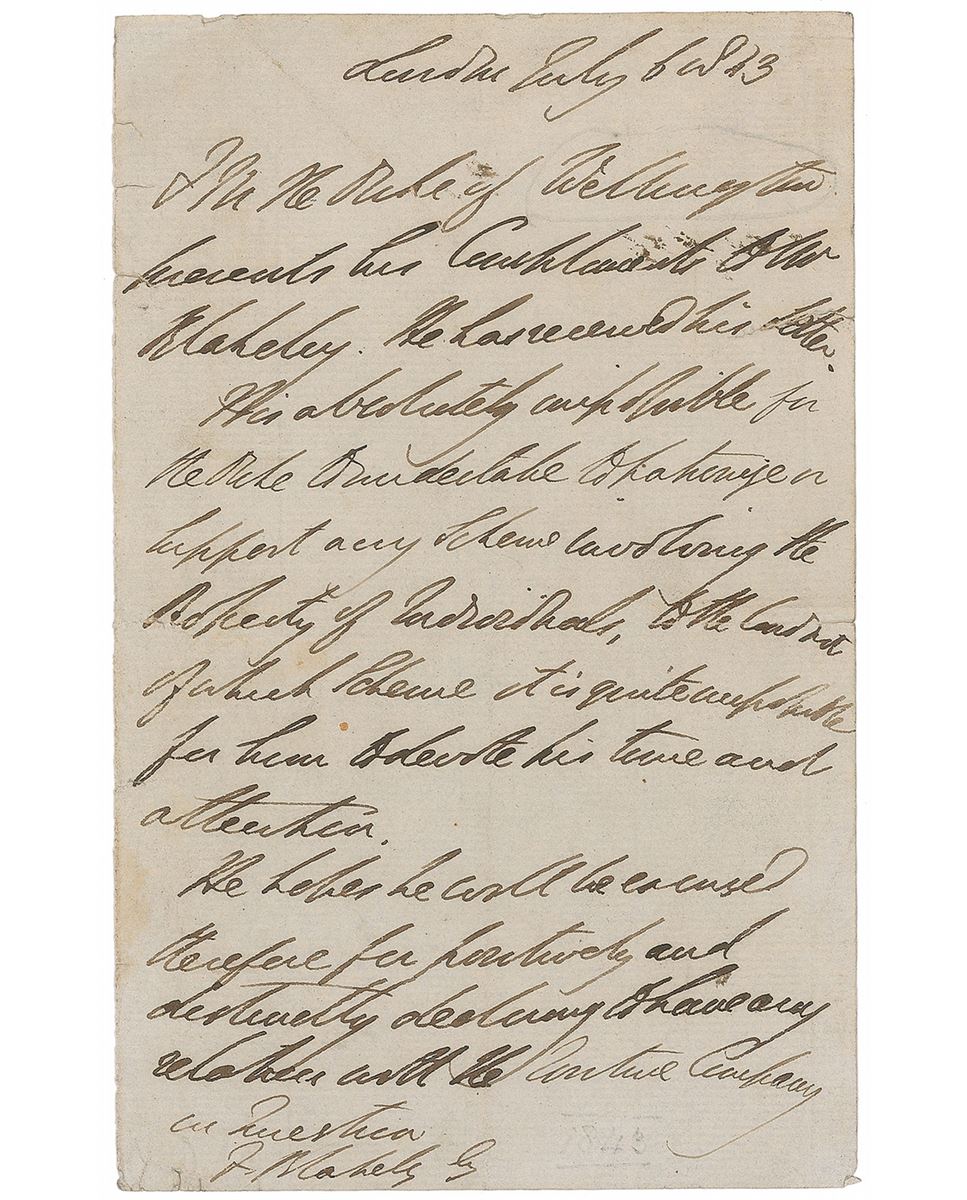 London July 6 1843
F M the Duke of Wellington
presents his Compliments to Mr
Blakeley. He has received his letter.
It is absolutely impossible for
the Duke to undertake to patronize or
support any Scheme involving the
Property of Individuals, to the Conduct
of which Scheme it is quite impossible
for him to devote his time and
attention.
He hopes he will be excused
therefore for positively and
distinctly declining to have any
relation with the Company
in Question
F. Blakely Esq